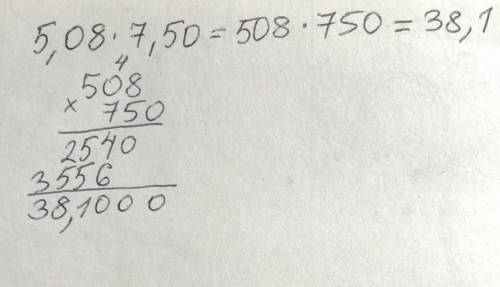 5,08 · 7,50 = 508 · 750 = 38,1
4
508
× 750
2540
3556
38,1000